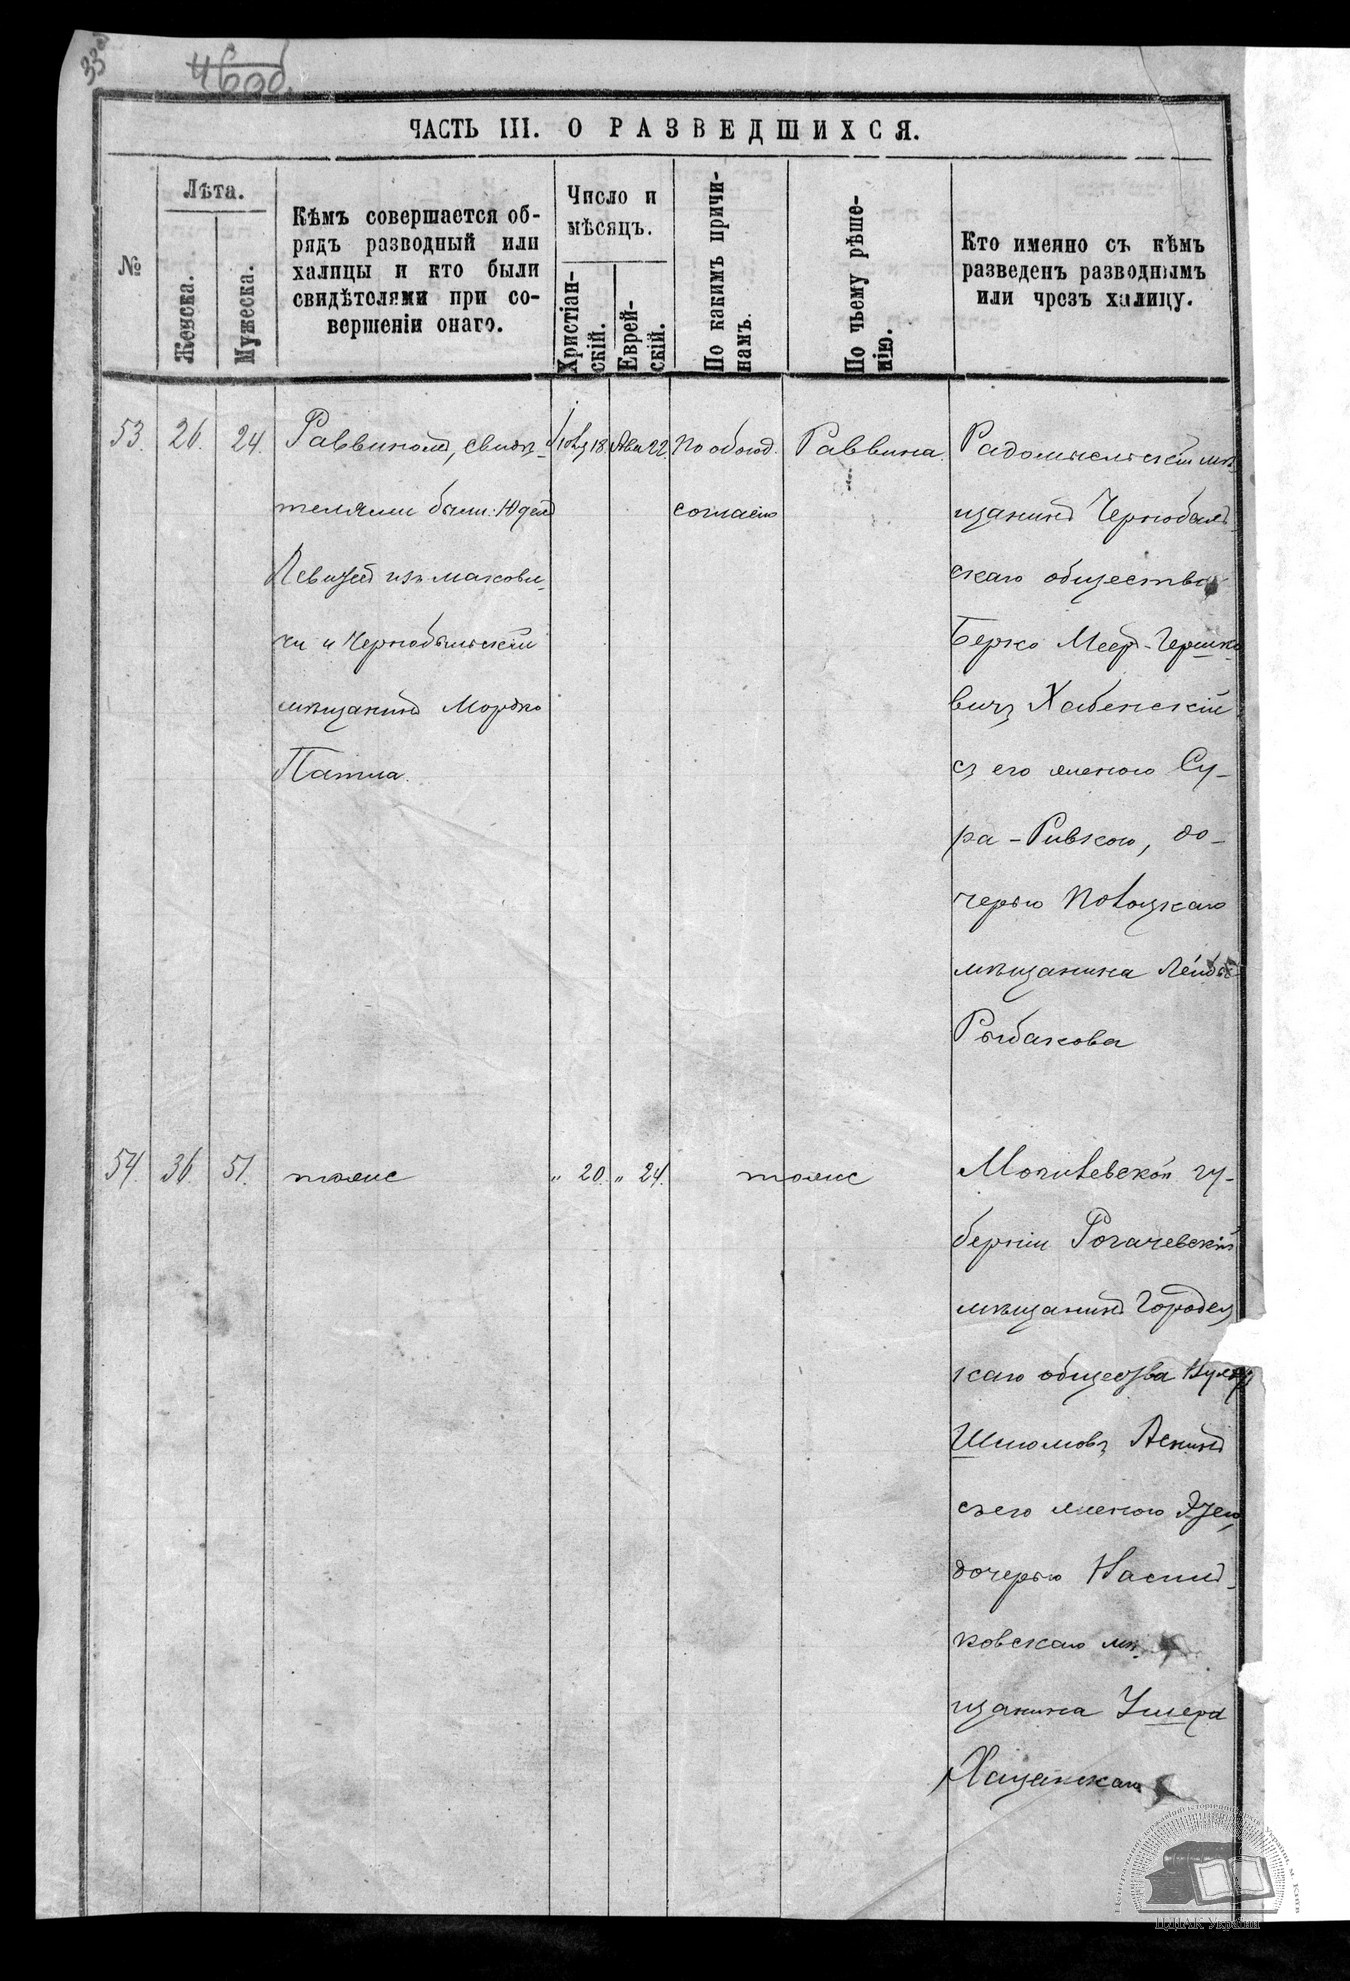 33
ЧАСТЬ III. О РАЗВЕДШИХСЯ.
№
Лѣта.
Женска.
Мужеска.
Кѣмъ совершается об-
рядъ разводный или
халицы и кто были
свидѣтелями при со-
вершеніи онаго.
Число и
мѣсяцъ.
Христіан-
скій.
Еврей-
скій.
По какимъ причи-
намъ.
По чьему рѣше-
нію.
Кто именно съ кѣмъ
разведенъ разводнымъ
или чрезъ халицу.
53.
26.
24.
Раввиномъ, свидѣ-
телями были: Юдель
изъ Макови-
чи и Чернобыльскій
мѣщанинъ Мордко
Патла.
18.
Ава 22.
По обоюд.
согласію
Раввина.
Радомысльскій мѣ-
щанинъ Чернобыль-
скаго общества
Берко Меер-Гершко-
вичъ Хабенскій
съ его женою Су-
ра-Ривкою, до-
черью
мѣщанина Лейбы
Рыбакова
54.
36.
51.
тоже
" 20.
" 24.
тоже
Могилевской гу-
берніи Рогачевскій
мѣщанинъ Городец
каго общества
Шліомовъ Аснинъ
съ его женою
дочерью
ковскаго мѣ-
щанина Ушера
Хацанскаго
ЦДІАК України